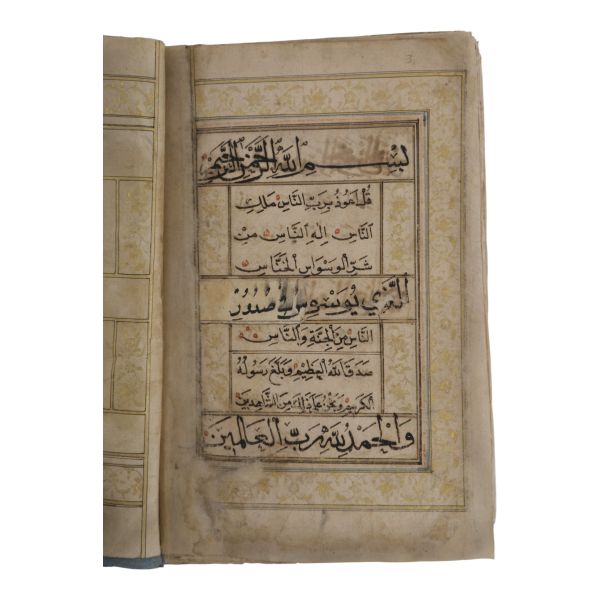 3
بِسْمِ اللهِ الرَّحْمٰنِ الرَّحِيْمِ
قُلْ اَعُوْذُ بِرَبِّ النَّاسِ مَلِكِ
النَّاسِ اِلٰهِ النَّاسِ مِنْ
شَرِّ الْوَسْوَاسِ الْخَنَّاسِ
الَّذِي يُوَسْوِسُ فِي صُدُوْرِ
النَّاسِ مِنَ الْجِنَّةِ وَالنَّاسِ
صَدَقَ اللهُ الْعَظِيْمُ وَبَلَّغَ رَسُوْلُهُ
الْكَرِيْمُ وَنَحْنُ عَلٰى ذٰلِكَ مِنَ الشَّاهِدِيْنَ
وَالْحَمْدُ لِلّٰهِ رَبِّ الْعَالَمِيْنَ